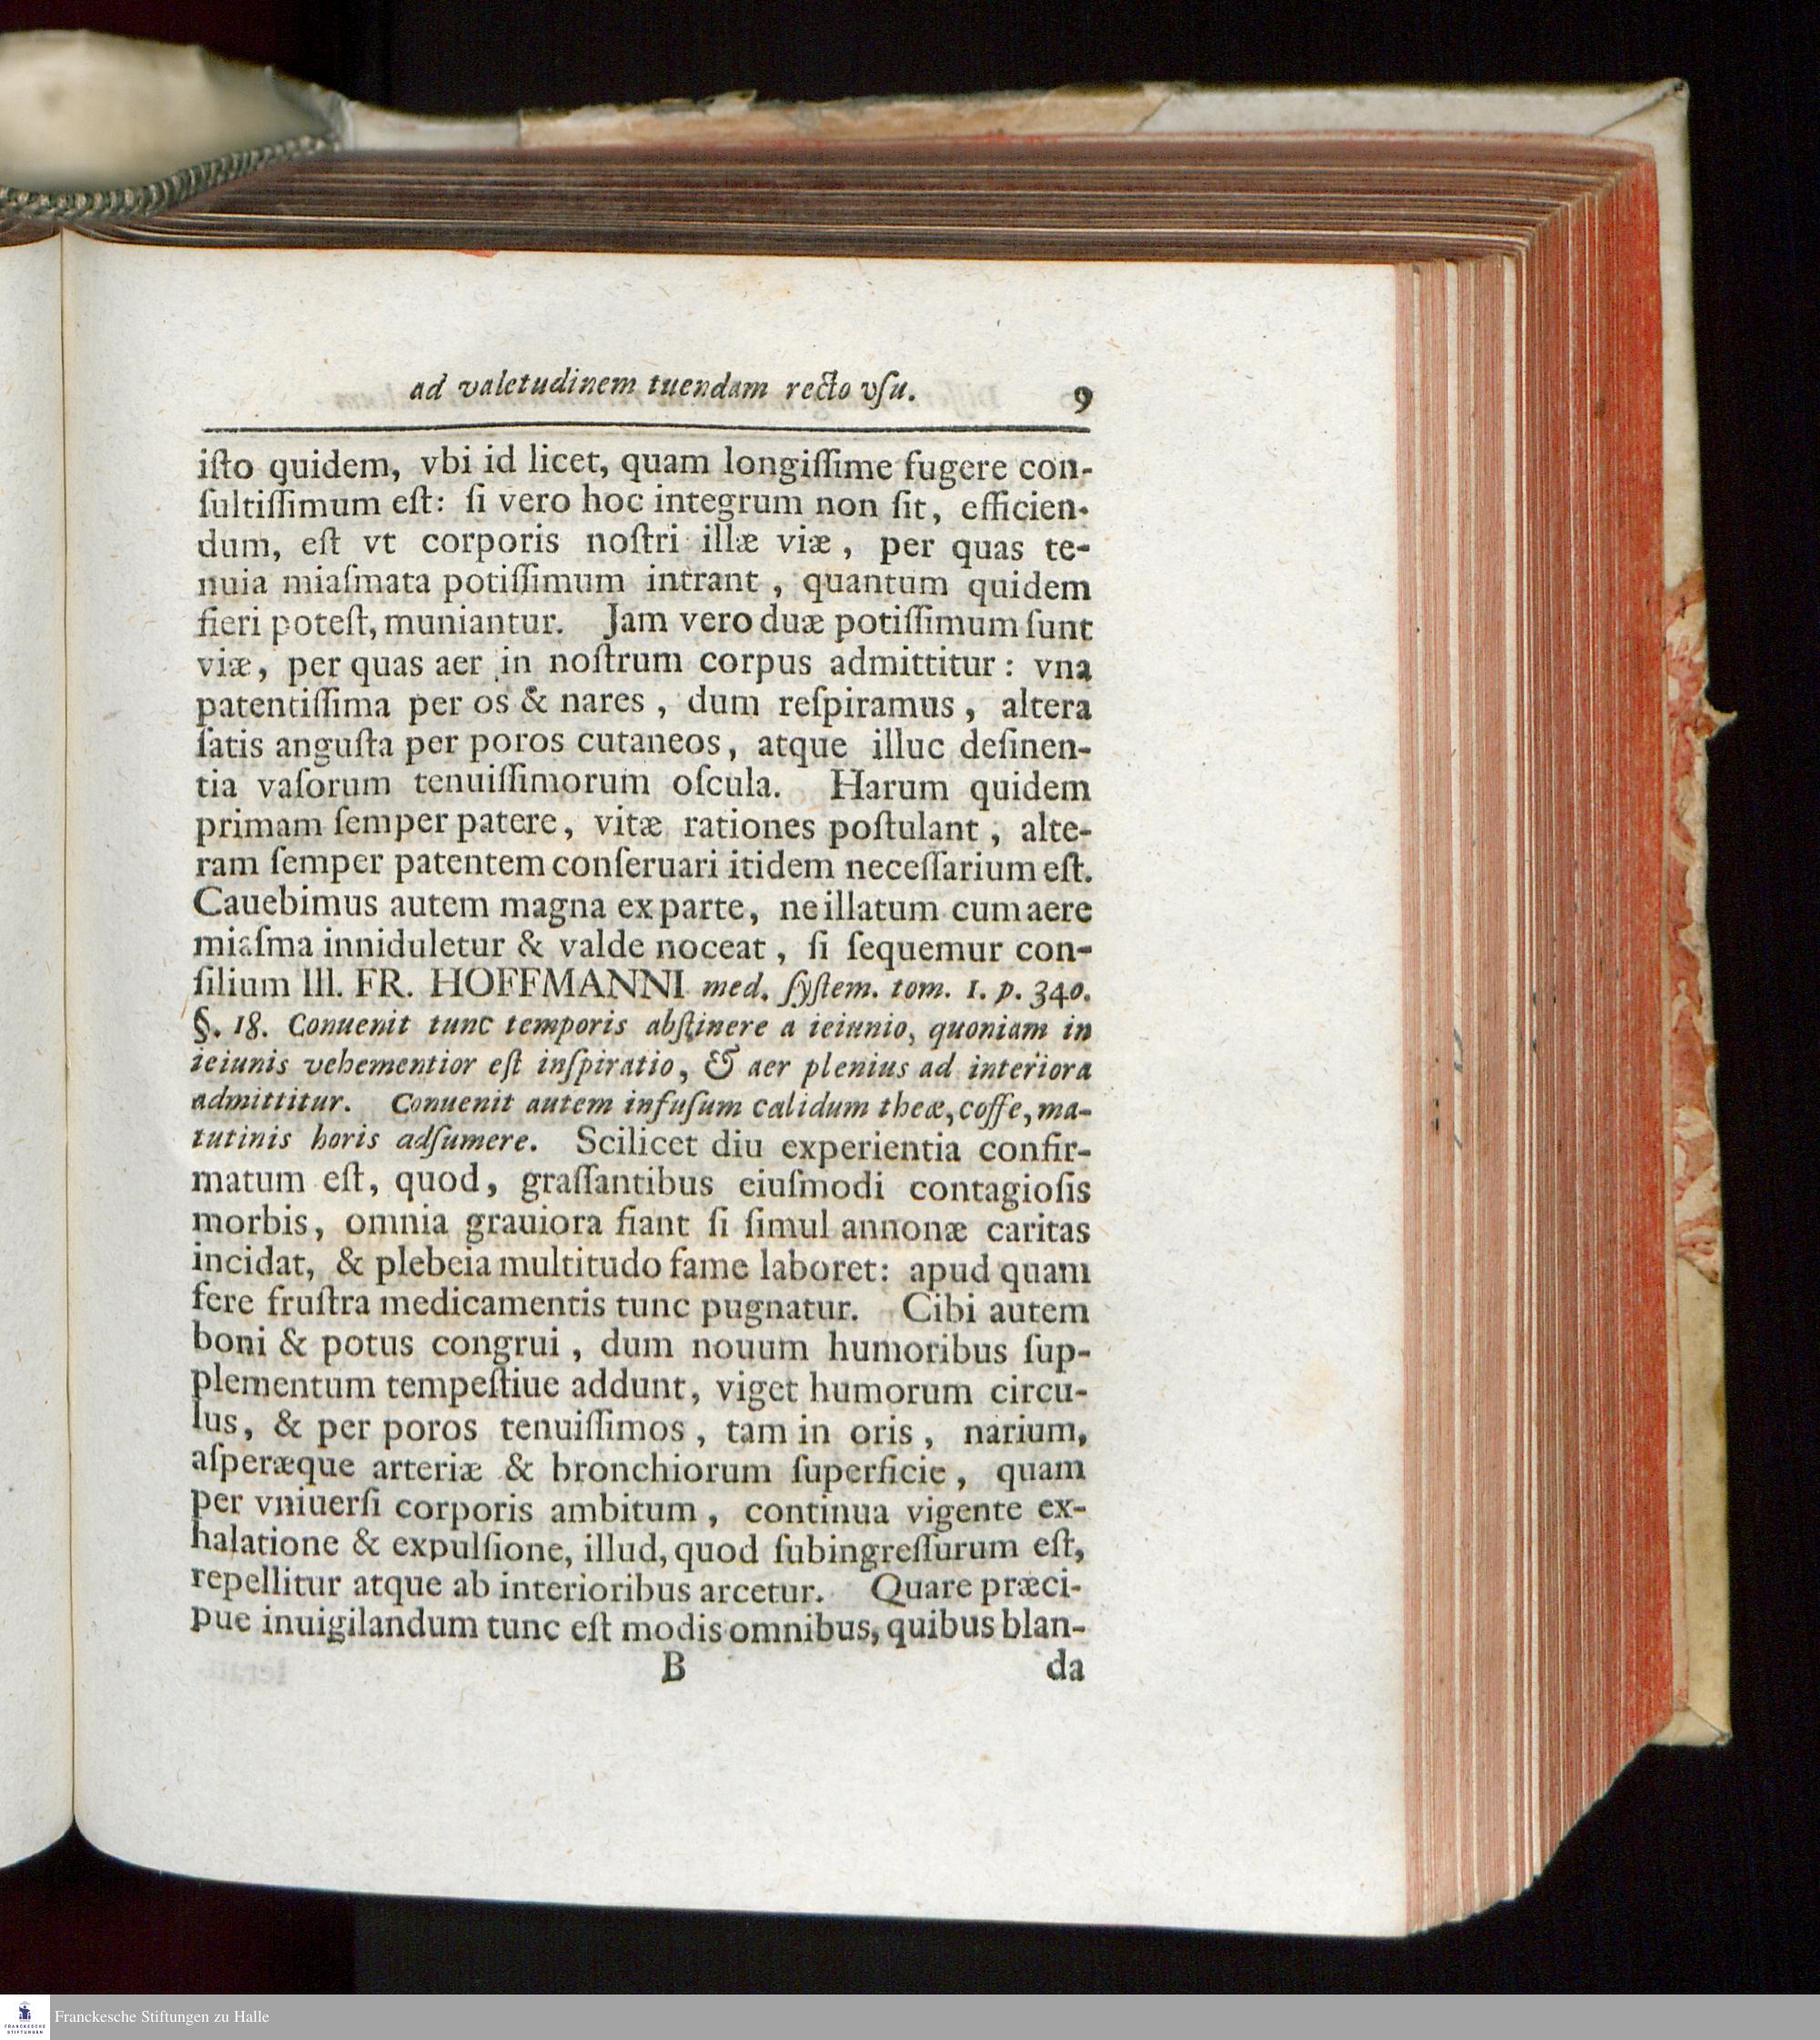 ad valetudinem tuendam recto vſu. 9
iſto quidem, vbi id licet, quam longiſſime fugere con-
ſultiſſimum eſt: ſi vero hoc integrum non ſit, efficien-
dum, eſt vt corporis noſtri illæ viæ, per quas te-
nuia miaſmata potiſſimum intrant, quantum quidem
fieri poteſt, muniantur. Jam vero duæ potiſſimum ſunt
viæ, per quas aer in noſtrum corpus admittitur: vna
patentiſſima per os & nares, dum reſpiramus, altera
ſatis anguſta per poros cutaneos, atque illuc deſinen-
tia vaſorum tenuiſſimorum oſcula. Harum quidem
primam ſemper patere, vitæ rationes poſtulant, alte-
ram ſemper patentem conſeruari itidem neceſſarium eſt.
Cauebimus autem magna ex parte, ne illatum cum aere
miaſma inniduletur & valde noceat, ſi ſequemur con-
ſilium Ill. FR. HOFFMANNI med. ſyſtem. tom. 1. p. 340.
§. 18. Conuenit tunc temporis abſtinere a ieiunio, quoniam in
ieiunis vehementior eſt inſpiratio, & aer plenius ad interiora
admittitur. Conuenit autem infuſum calidum theæ, coffe, ma-
tutinis horis adſumere. Scilicet diu experientia confir-
matum eſt, quod, graſſantibus eiuſmodi contagioſis
morbis, omnia grauiora fiant ſi ſimul annonæ caritas
incidat, & plebeia multitudo fame laboret: apud quam
fere fruſtra medicamentis tunc pugnatur. Cibi autem
boni & potus congrui, dum nouum humoribus ſup-
plementum tempeſtiue addunt, viget humorum circu-
lus, & per poros tenuiſſimos, tam in oris, narium,
aſperæque arteriæ & bronchiorum ſuperficie, quam
per vniuerſi corporis ambitum, continua vigente ex-
halatione & expulſione, illud, quod ſubingreſſurum eſt,
repellitur atque ab interioribus arcetur. Quare præci-
pue inuigilandum tunc eſt modis omnibus, quibus blan-
B da
FRANCKESCHE STIFTUNGEN
Franckesche Stiftungen zu Halle